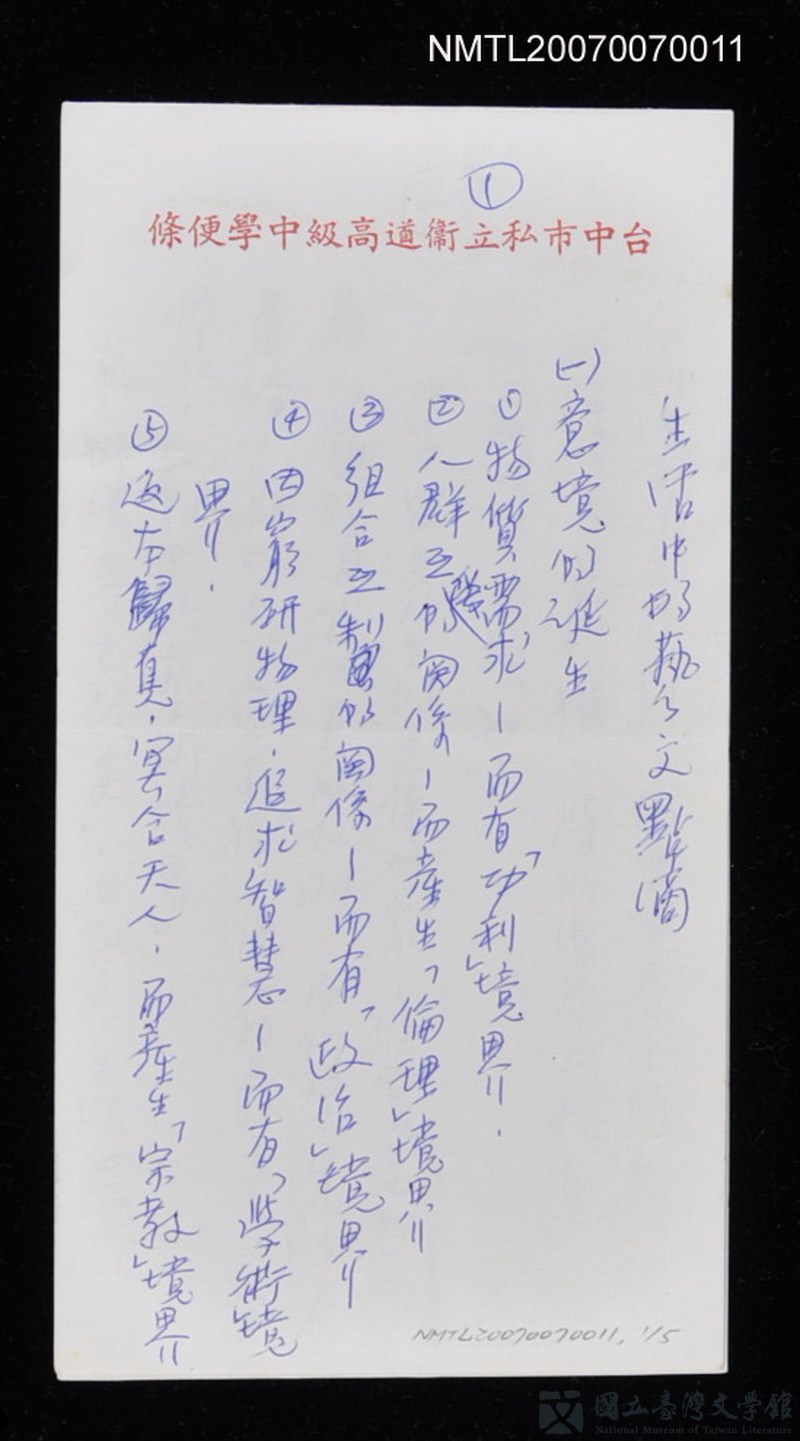 NMTL20070070011
①
台中市私立衛道高級中學便條
生活中的藝文點滴
(一)意境的誕生
① 物質需求—而有「功利」境界．
② 人群立的關係—而產生「倫理」境界
③ 組合立制的關係—而有「政治」境界
④ 因窮研物理．追求智慧—而有「學術」境
界．
⑤ 返本歸真．冥合天人．而產生「宗教」境界
NMTL20070070011, 1/5
國立臺灣文學館
National Museum of Taiwan Literature